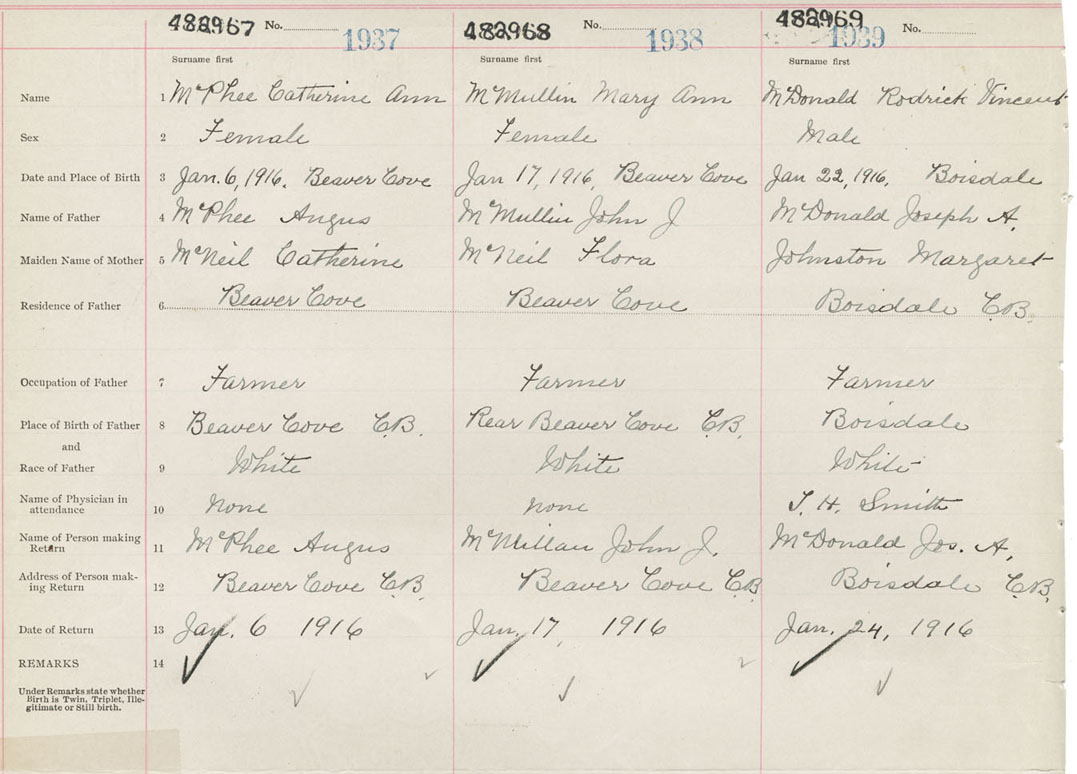 482967 No. 1937 482968 No. 1938 482969 No. 1939
Surname first Surname first Surname first
Name 1 McPhee Catherine Ann McMullin Mary Ann McDonald Rodrick Vincent
Sex 2 Female Female Male
Date and Place of Birth 3 Jan. 6, 1916. Beaver Cove Jan 17, 1916, Beaver Cove Jan 22, 1916, Boisdale
Name of Father 4 McPhee Angus McMullin John J McDonald Joseph A.
Maiden Name of Mother 5 McNeil Catherine McNeil Flora Johnston Margaret
Residence of Father 6 Beaver Cove Beaver Cove Boisdale C.B.
Occupation of Father 7 Farmer Farmer Farmer
Place of Birth of Father 8 Beaver Cove C.B. Rear Beaver Cove C.B. Boisdale
and
Race of Father 9 White White White
Name of Physician in
attendance 10 none none T. H. Smith
Name of Person making
Return 11 McPhee Angus McMillan John J. McDonald Jos. A.
Address of Person mak-
ing Return 12 Beaver Cove C.B. Beaver Cove C.B Boisdale C.B.
Date of Return 13 Jan. 6 1916 Jan, 17, 1916 Jan. 24, 1916
REMARKS 14
Under Remarks state whether
Birth is Twin, Triplet, Ille-
gitimate or Still birth.